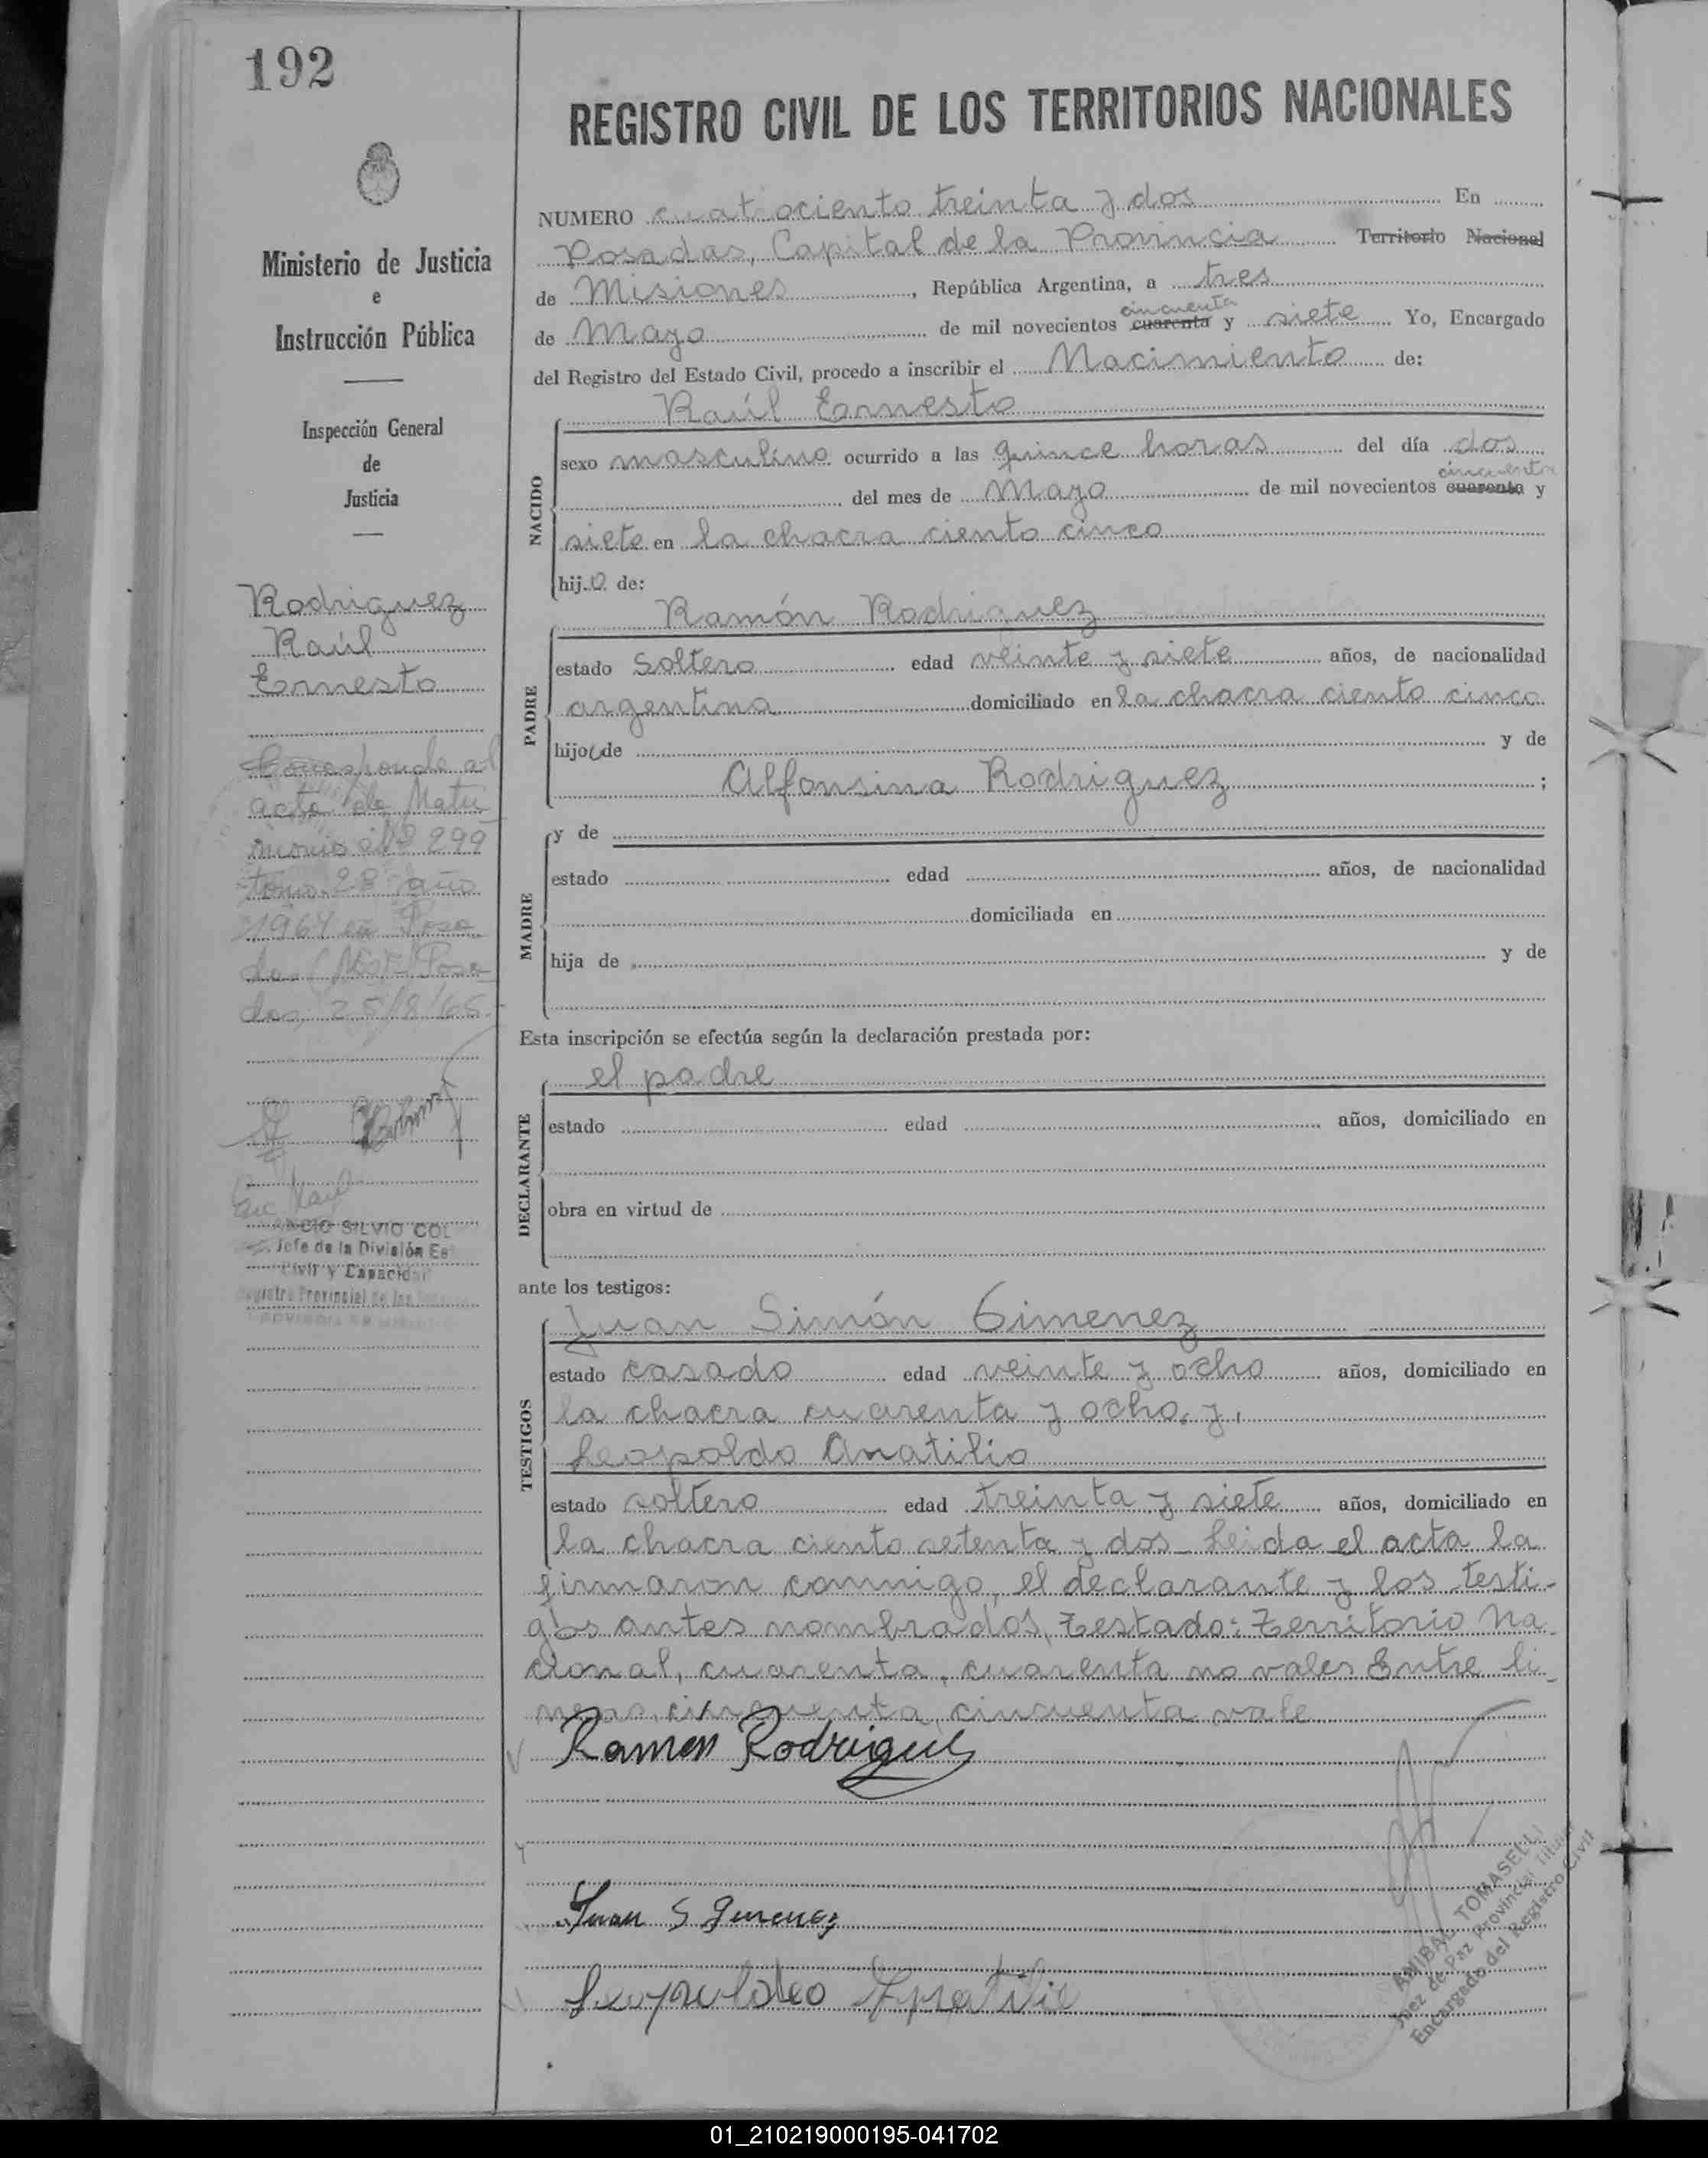 192
Ministerio de Justicia
e
Instrucción Pública
Inspección General
de
Justicia
Rodriguez
Raúl
Ernesto
Corresponde al
acta de Matri
monio Nº 299
tomo 2B año
1964 en Posa
das
das, 25/8/65.
SILVIO COL
Jefe de la División Es
Civil y Capacidad
Registro Provincial de las
REGISTRO CIVIL DE LOS TERRITORIOS NACIONALES
NUMERO cuatrociento treinta y dos En
Posadas, Capital de la Provincia Territorio Nacional
de Misiones, República Argentina, a tres
cincuenta
de Mayo de mil novecientos cuarenta y siete Yo, Encargado
del Registro del Estado Civil, procedo a inscribir el Nacimiento de:
Raúl Ernesto
NACIDO
sexo masculino ocurrido a las quince horas del día dos
cincuenta
del mes de Mayo de mil novecientos cuarenta y
siete en la chacra ciento cinco
hijo de:
Ramón Rodriguez
PADRE
estado soltero edad veinte y siete años, de nacionalidad
argentina domiciliado en la chacra ciento cinco
hijo de y de
Alfonsina Rodriguez ;
MADRE
y de
estado edad años, de nacionalidad
domiciliada en
hija de y de
Esta inscripción se efectúa según la declaración prestada por:
el padre
DECLARANTE
estado edad años, domiciliado en
obra en virtud de
ante los testigos:
Juan Simón Gimenez
TESTIGOS
estado casado edad veinte y ocho años, domiciliado en
la chacra cuarenta y ocho, y,
Leopoldo Anatilio
estado soltero edad treinta y siete años, domiciliado en
la chacra ciento setenta y dos_ Leida el acta la
firmaron conmigo, el declarante y los testi-
gos antes nombrados, Testado: Territorio Na_
cional, cuarenta, cuarenta no vales Entre li_
neas, cincuenta, cincuenta vale
Ramon Rodriguez
Juan S Gimenez
Leopoldo
ANIBAL TOMASELLI
Juez de Paz Provincial Titular
Encargado del Registro Civil
01_210219000195-041702